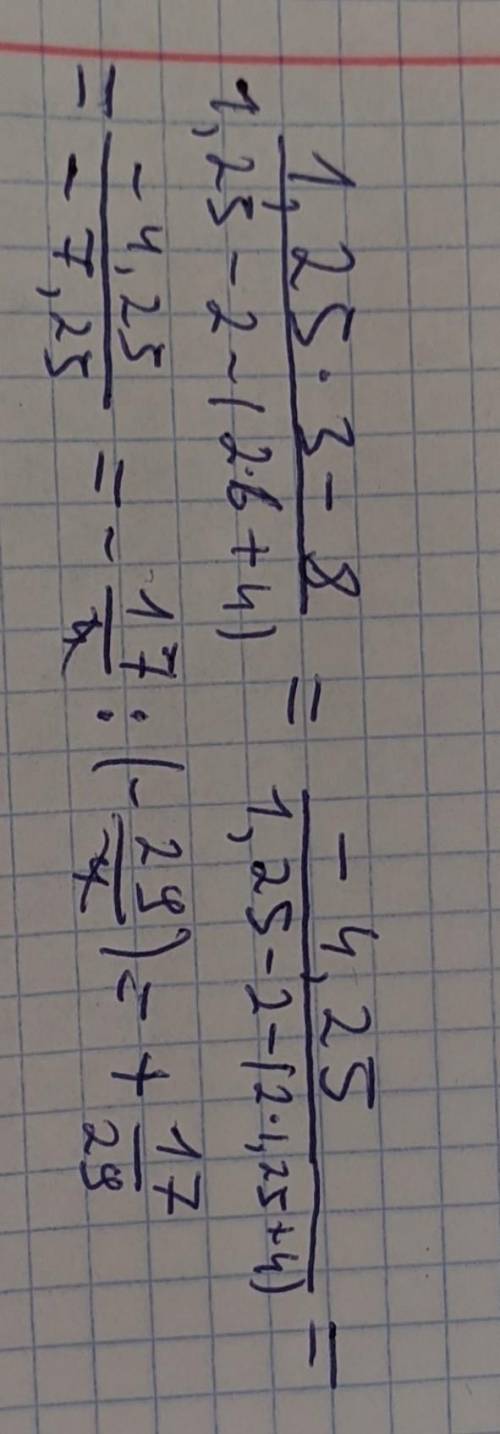 1,25 · 3 - 8 / 1,25 - 2 - (2·b + 4) = - 4,25 / 1,25 - 2 - (2·1,25 + 4) =
= - 4,25 / - 7,25 = - 17/4 : (- 29/4) = + 17/29